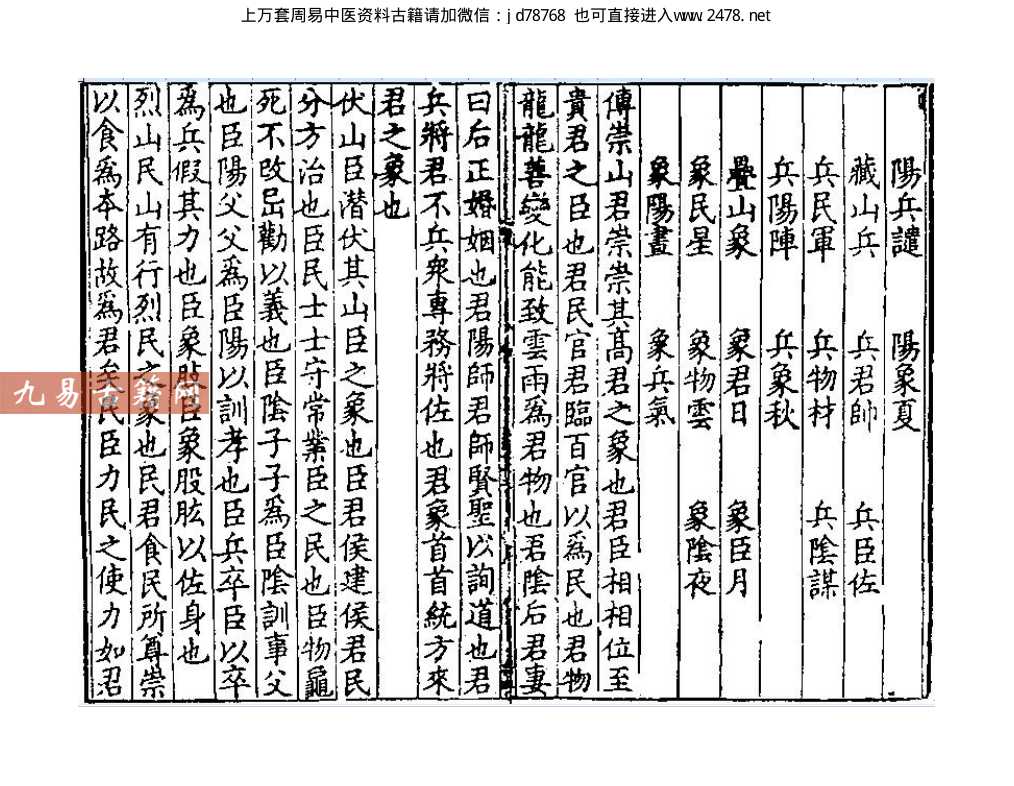 上万套周易中医资料古籍请加微信：jd78768 也可直接进入www.2478.net
陽兵譴 陽象夏
藏山兵 兵君帥 兵臣佐
兵民軍 兵物材 兵陰謀
兵陽陣 兵象秋
疊山象 象君日 象臣月
象民星 象物雲 象陰夜
象陽晝 象兵氣
傳崇山君崇崇其髙君之象也君臣相相位至
貴君之臣也君民官君臨百官以為民也君物
龍龍善變化能致雲雨爲君物也君陰后君妻
曰后正婚姻也君陽師君師賢聖以詢道也君
兵將君不兵衆專務將佐也君象首首統方來
君之象也
伏山臣潛伏其山臣之象也臣君侯建侯君民
分方治也臣民士士守常業臣之民也臣物龜
死不改岀勸以義也臣陰子子爲臣陰訓事父
也臣陽父父爲臣陽以訓孝也臣兵卒臣以卒
爲兵假其力也臣象股臣象股肱以佐身也
烈山民山有行烈民之象也民君食民所尊崇
以食爲本路故爲君矣民臣力民之使力如君
九易古籍网